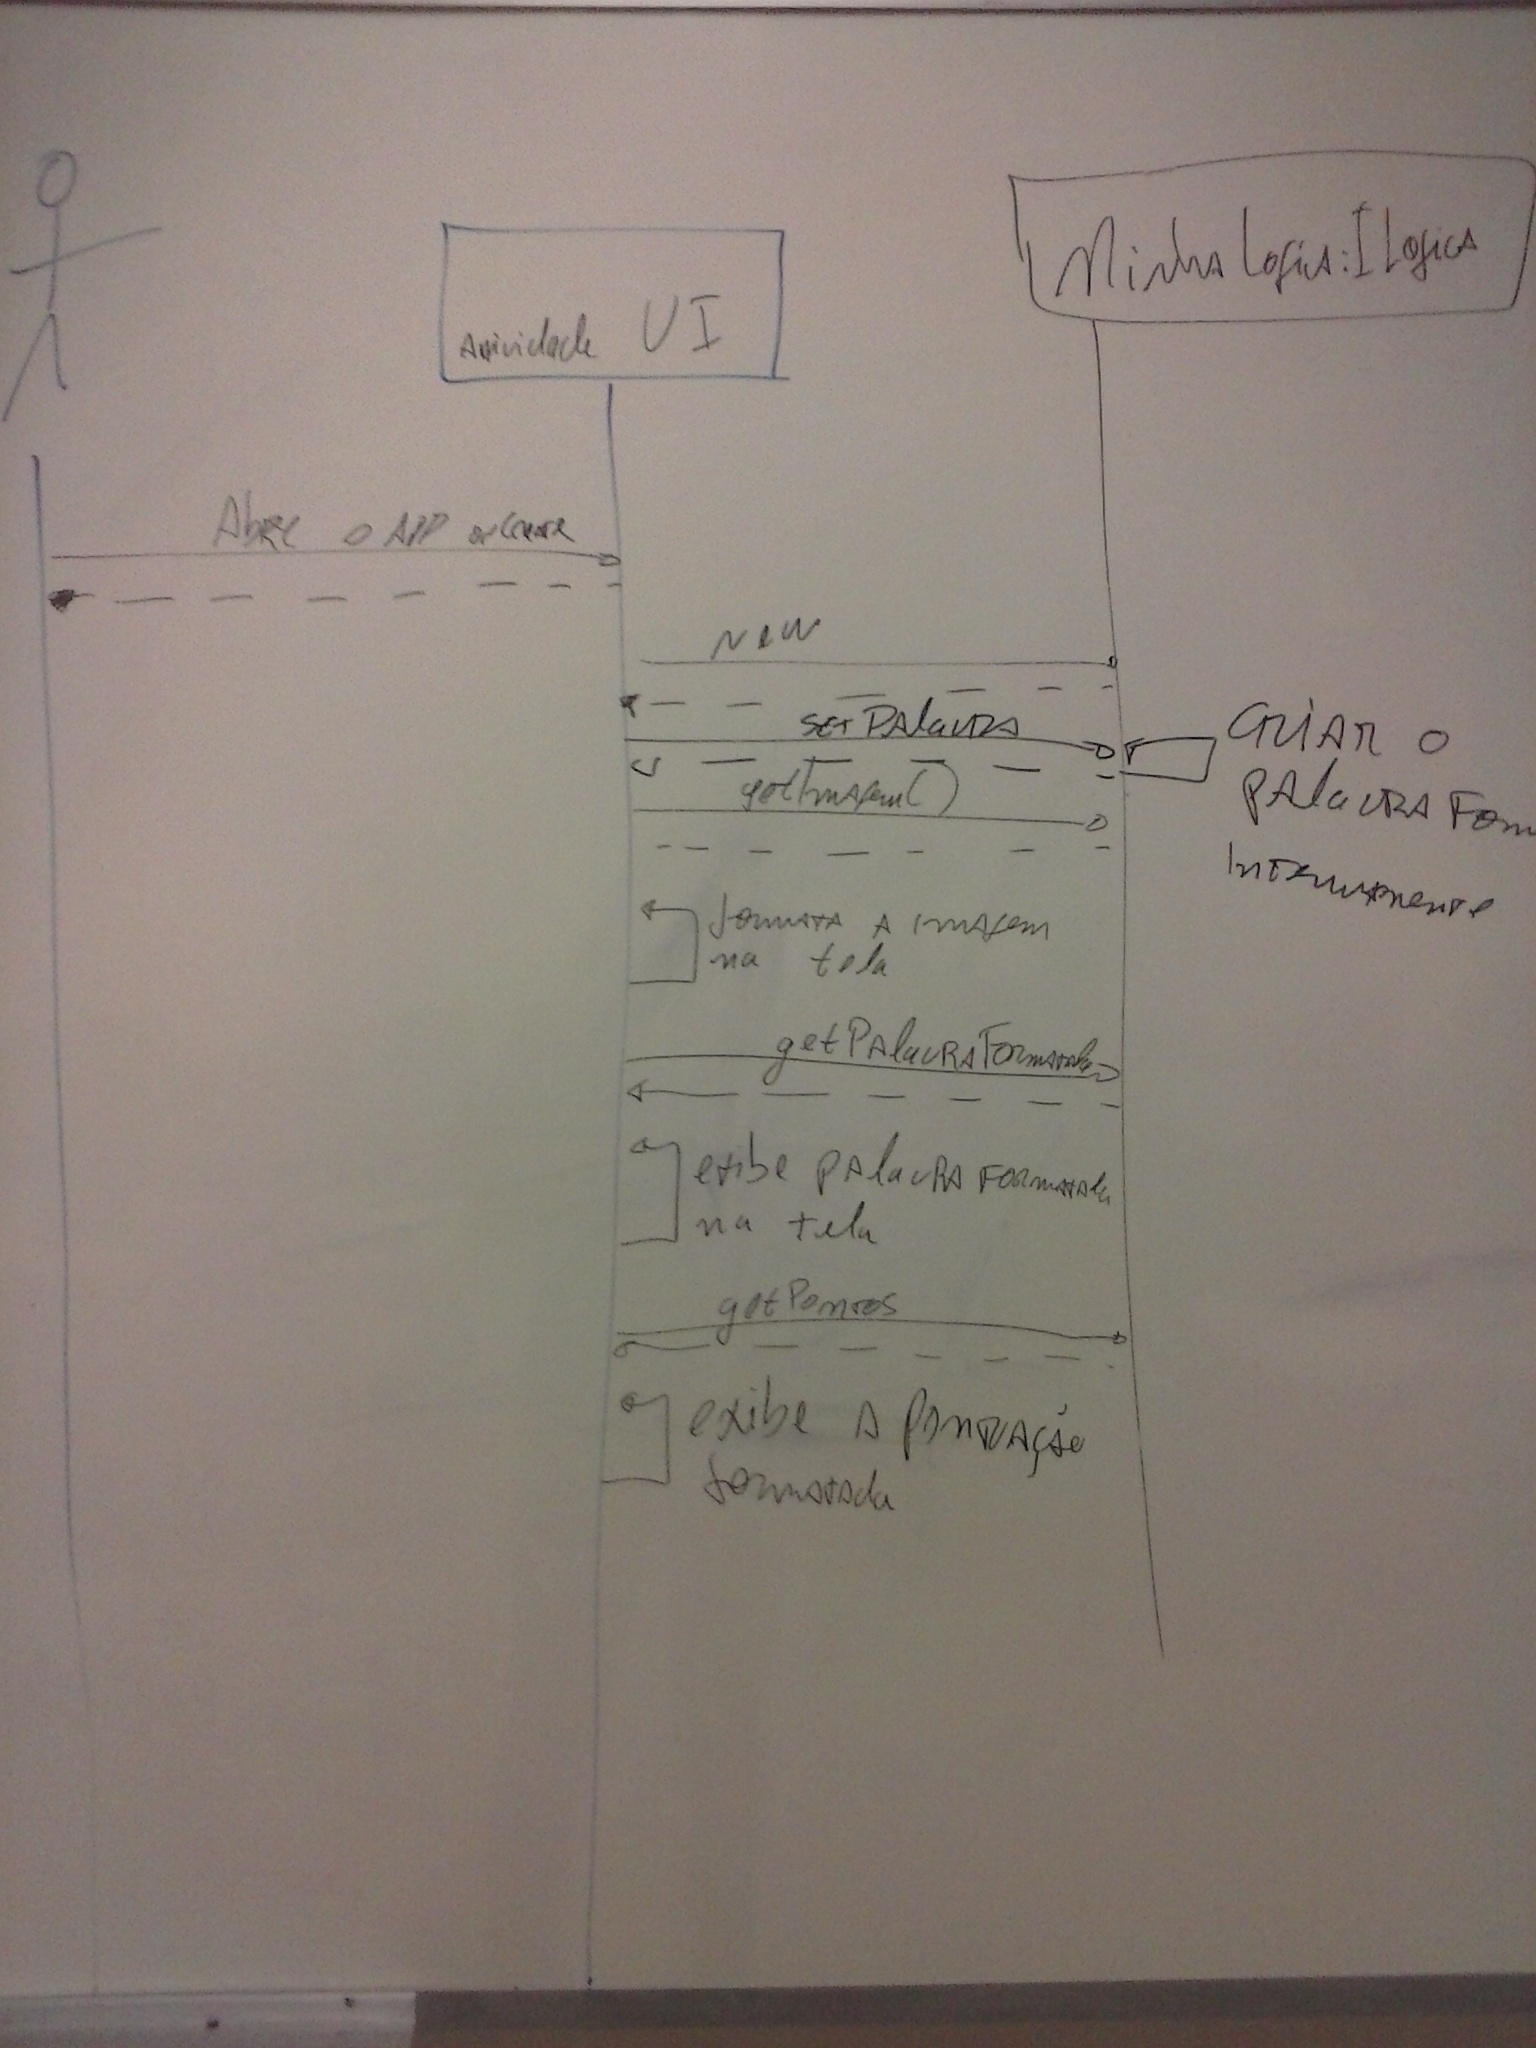 Minha Logica:ILogica
Atividade UI
Abre o APP onCreate
new
setPalavra
Criar o
Palavra Form
Internamente
getImagem()
formata a imagem
na tela
getPalavraFormatada
exibe palavra formatada
na tela
getPontos
exibe a Pontuação
formatada